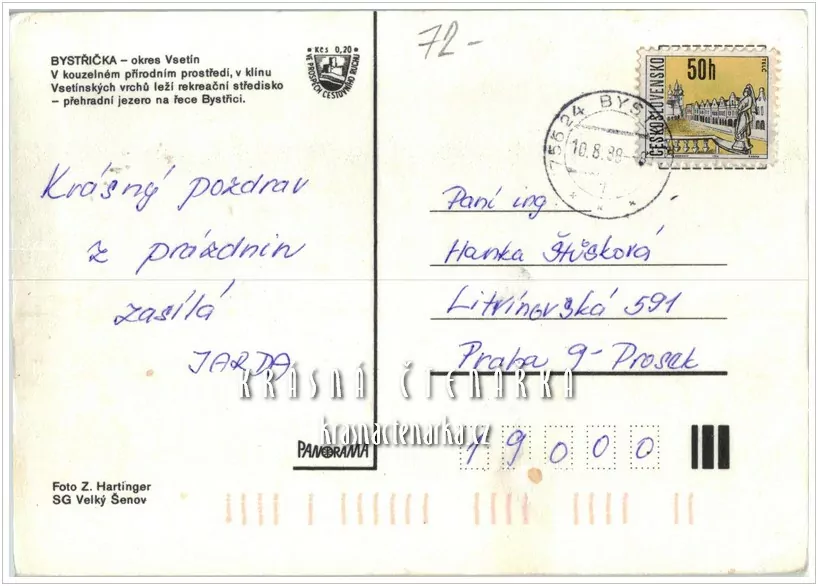 BYSTŘIČKA – okres Vsetín
V kouzelném přírodním prostředí, v klínu
Vsetínských vrchů leží rekreační středisko
– přehradní jezero na řece Bystřici.
Kčs 0,20
VE PROSPĚCH CESTOVNÍHO RUCHU
72-
50h
ČESKOSLOVENSKO
TELČ
75624 BYS
10.8.88
1
Krásný pozdrav
z prázdnin
zasílá
JARDA
Paní ing.
Hanka Štůsková
Litvínovská 591
Praha 9-Prosek
KRÁSNÁ ČTENÁRKA
krasnactenarka.cz
19000
PANORAMA
Foto Z. Hartinger
SG Velký Šenov